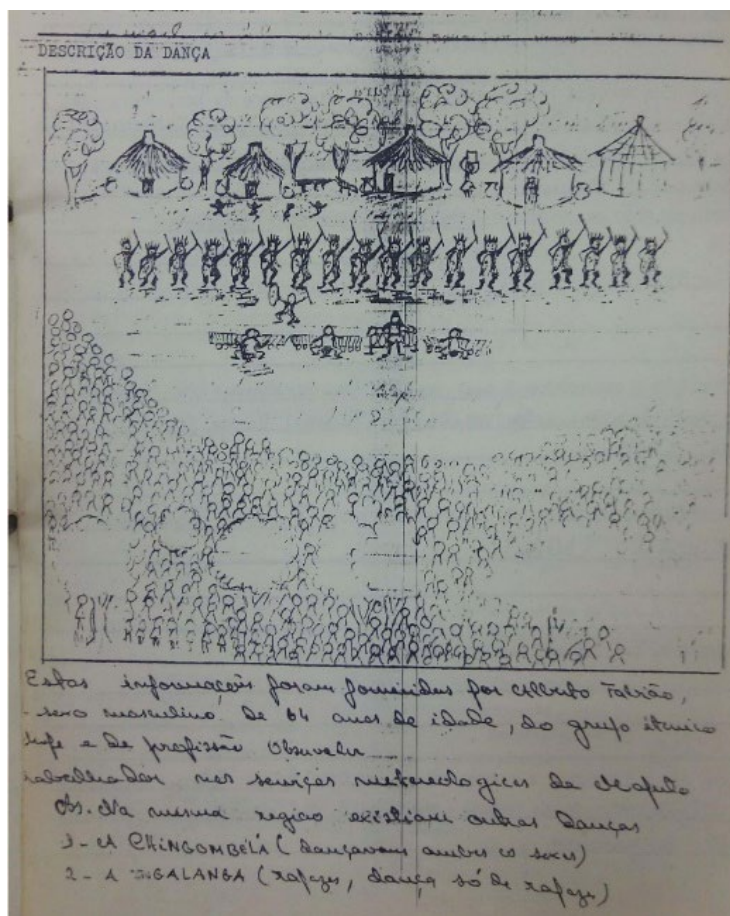 DESCRIÇÃO DA DANÇA
Estas informações foram fornecidas por Alberto Fabião,
sexo masculino de 64 anos de idade, do grupo étnico
e de profissão Observador
trabalhador nos serviços metereologicos de Maputo
Obs. Na mesma região existiam outras Danças
1- A CHINGOMBELÁ (Dançavam ambos os sexos)
2- A GALANGA (rapazes, dança só de rapazes)